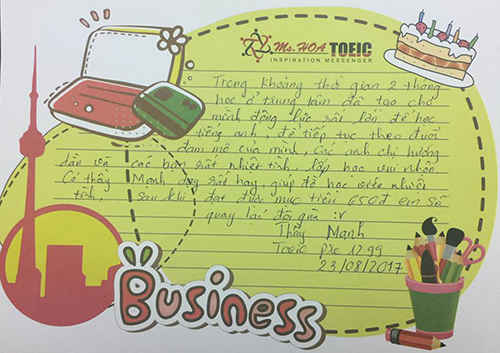 Ms.HOA TOEIC
INSPIRATION MESSENGER
Trong khoảng thời gian 2 tháng
học ở trung tâm đã tạo cho
mình động lực rất lớn để học
tiếng anh, để tiếp tục theo đuổi
đam mê của mình, Các anh chị hướng
dẫn và các bạn rất nhiệt tình, lớp học vui nhộn.
Có thầy Mạnh dạy rất hay, giúp đỡ học viên nhiệt
tình, sau khi đạt được mục tiêu 650đ em sẽ
quay lại đòi quà :v
Thầy Mạnh
Toeic Pre 1299
23/08/2017
Business